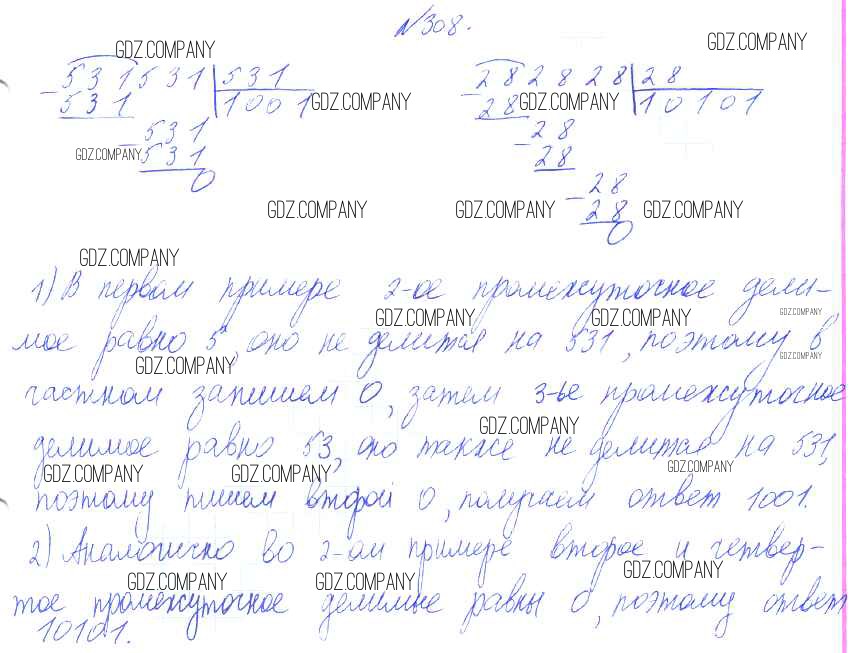 №308.
GDZ.COMPANY GDZ.COMPANY
531531 | 531 282828 | 28
- 531 1001 GDZ.COMPANY - 28 GDZ.COMPANY 10101
- 531 - 28
GDZ.COMPANY 531 28
0 - 28
GDZ.COMPANY GDZ.COMPANY 28 GDZ.COMPANY
0
GDZ.COMPANY
1) В первом примере 2-ое промежуточное дели-
GDZ.COMPANY GDZ.COMPANY GDZ.COMPANY
мое равно 5, оно не делится на 531, поэтому в
GDZ.COMPANY GDZ.COMPANY
частном запишем 0, затем 3-ье промежуточное
GDZ.COMPANY
делимое равно 53, оно также не делится на 531,
GDZ.COMPANY GDZ.COMPANY GDZ.COMPANY
поэтому пишем второй 0, получаем ответ 1001.
2) Аналогично во 2-ом примере второе и четвер-
GDZ.COMPANY GDZ.COMPANY GDZ.COMPANY
тое промежуточное делимые равны 0, поэтому ответ
10101.